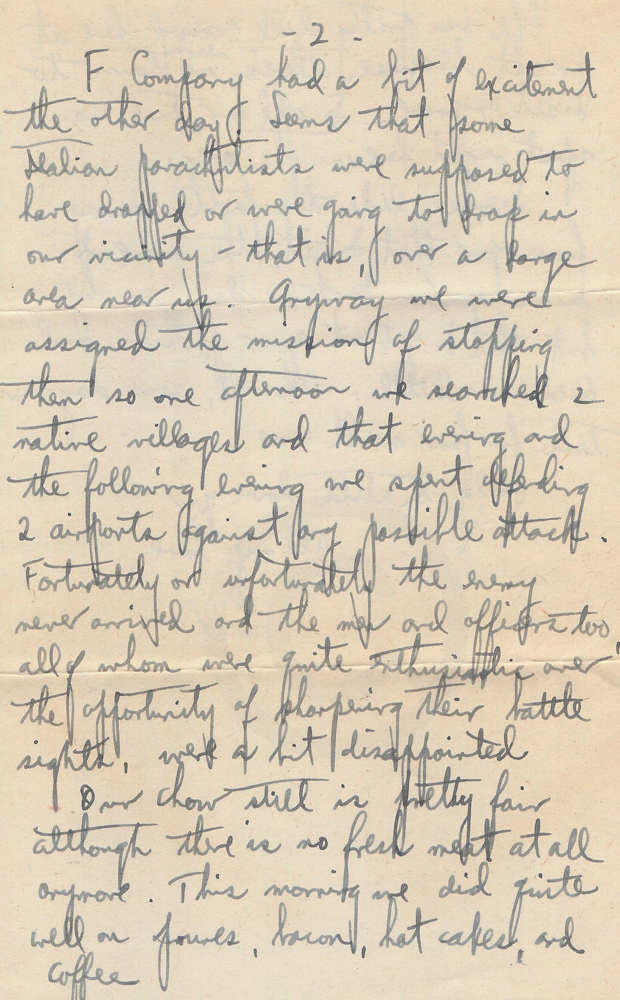 - 2 -
F Company had a bit of excitement
the other day. Seems that some
Italian parachutists were supposed to
have dropped or were going to drop in
our vicinity - that is, over a large
area near us. Anyway we were
assigned the mission of stopping
them so one afternoon we searched 2
native villages and that evening and
the following evening we spent defending
2 airports against any possible attack.
Fortunately or unfortunately the enemy
never arrived and the men and officers too,
all of whom were quite enthusiastic over
the opportunity of sharpening their battle
sights, were a bit disappointed
Our chow still is pretty fair
although there is no fresh meat at all
anymore. This morning we did quite
well on prunes, bacon, hot cakes, and
coffee